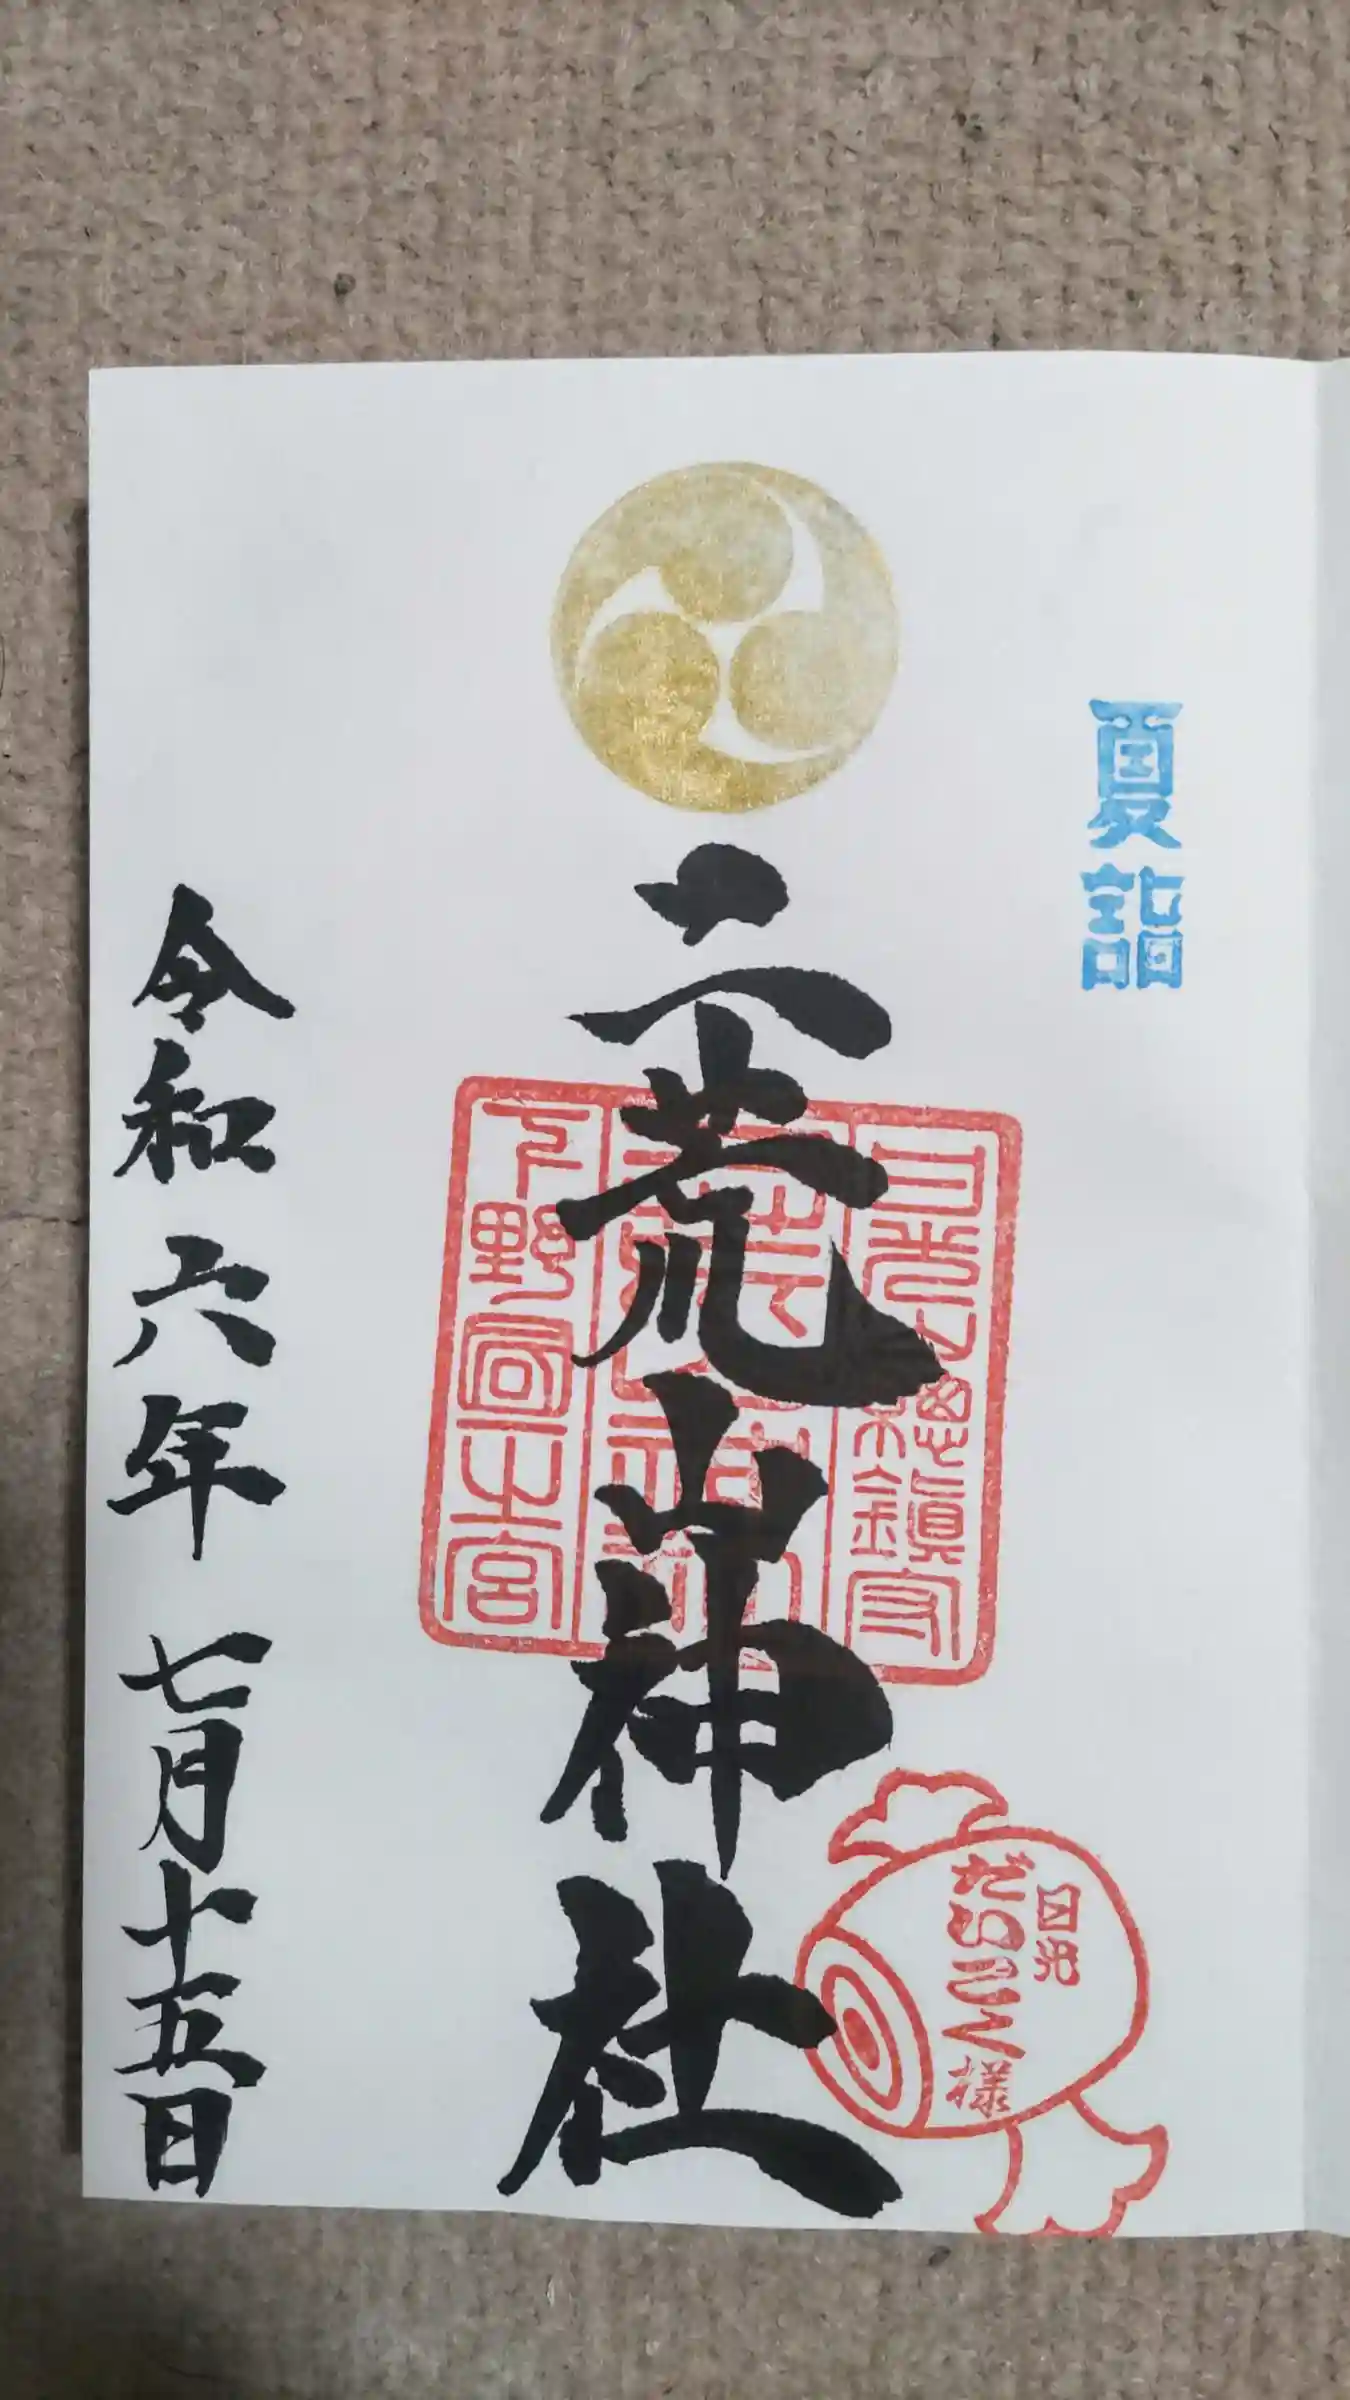 夏詣
日光山総鎮守
二荒山神社
下野国一之宮
日光
だいこく様
令和六年 七月十五日